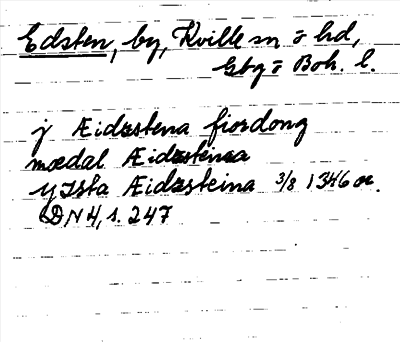 Edsten, by, Kville sn o hd,
Gbg o Boh. l.
j Æidzstena fiordong
mædal Æidzsteina
yzsta Æidzsteina 3/8 1346 or.
DN 4, s. 247